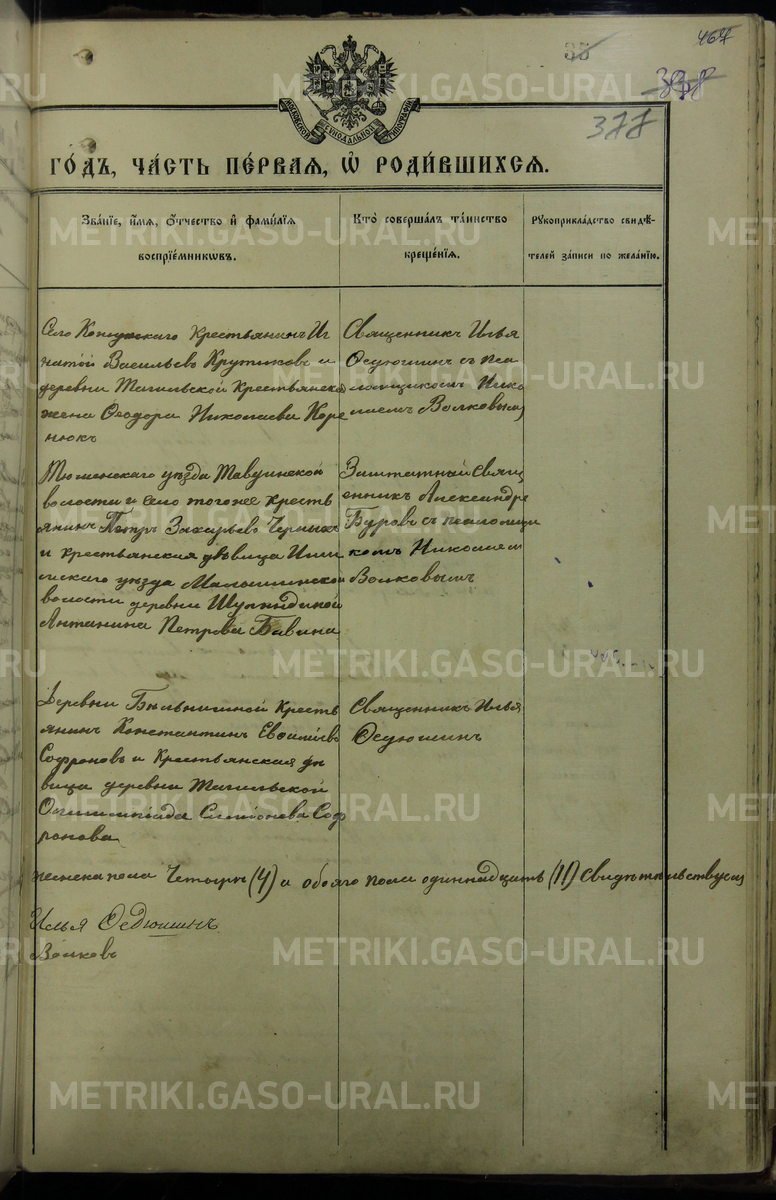 467
35
377
МОСКОВСКОЙ СѴНОДАЛЬНОЙ ТИПОГРАФІИ
ГО́ДЪ, ЧА́СТЬ ПЕ́РВАЯ, Ѡ҆ РОДИ́ВШИХСЯ.
Зва́нїе, и҆́мя, ѻ҆́тчество и҆ фами́лїя
воспрїе́мникѡвъ.
Кто̀ соверша́лъ та́инство
креще́нїя.
Рꙋкоприкла́дство свидѣ́-
телей за́писи по жела́нїю.
Село крестьянинъ Иг
натій Васильевъ Крутиковъ и
деревни Тагильской крестьянска
жена Ѳеодора Николаева Коре
нюкъ
Священникъ Илья
Ѳедюшинъ съ пса
ломщикомъ Нико
лаемъ Волковымъ
Тюменскаго уѣзда Тавдинской
волости и село того же кресть
янинъ Петръ Захарьевъ Черныхъ
и крестьянская дѣвица Ишим
скаго уѣзда
волости деревни
Антанина Петрова Бабина
Заштатный свящ
енникъ Александръ
Буровъ съ псаломщи
комъ Николаем
Волковымъ
Деревни кресть
янинъ Константинъ Евѳиміевъ
Софроновъ и крестьянская дѣ
вица деревни Тагильской
Олимпіада Симіонова Соф
ронова
Священникъ Илья
Ѳедюшинъ
женска пола Четыре (4) и обоего пола одиннадцать (11) свидѣтельствуем
Илья Ѳедюшинъ
Волковъ
METRIKI.GASO-URAL.RU